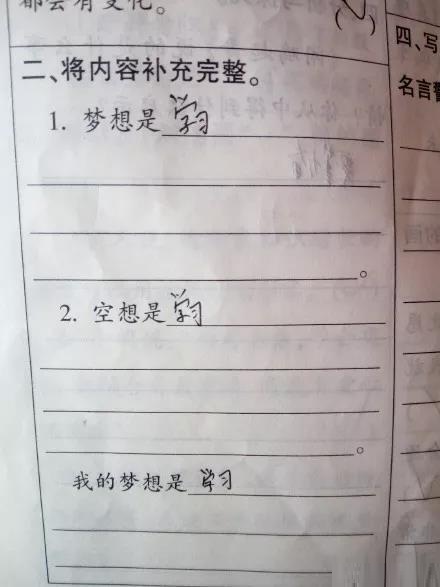 都会有变化。
()
二、将内容补充完整。
1. 梦想是学习
。
2. 空想是学习
。
我的梦想是学习
四、写
名言警